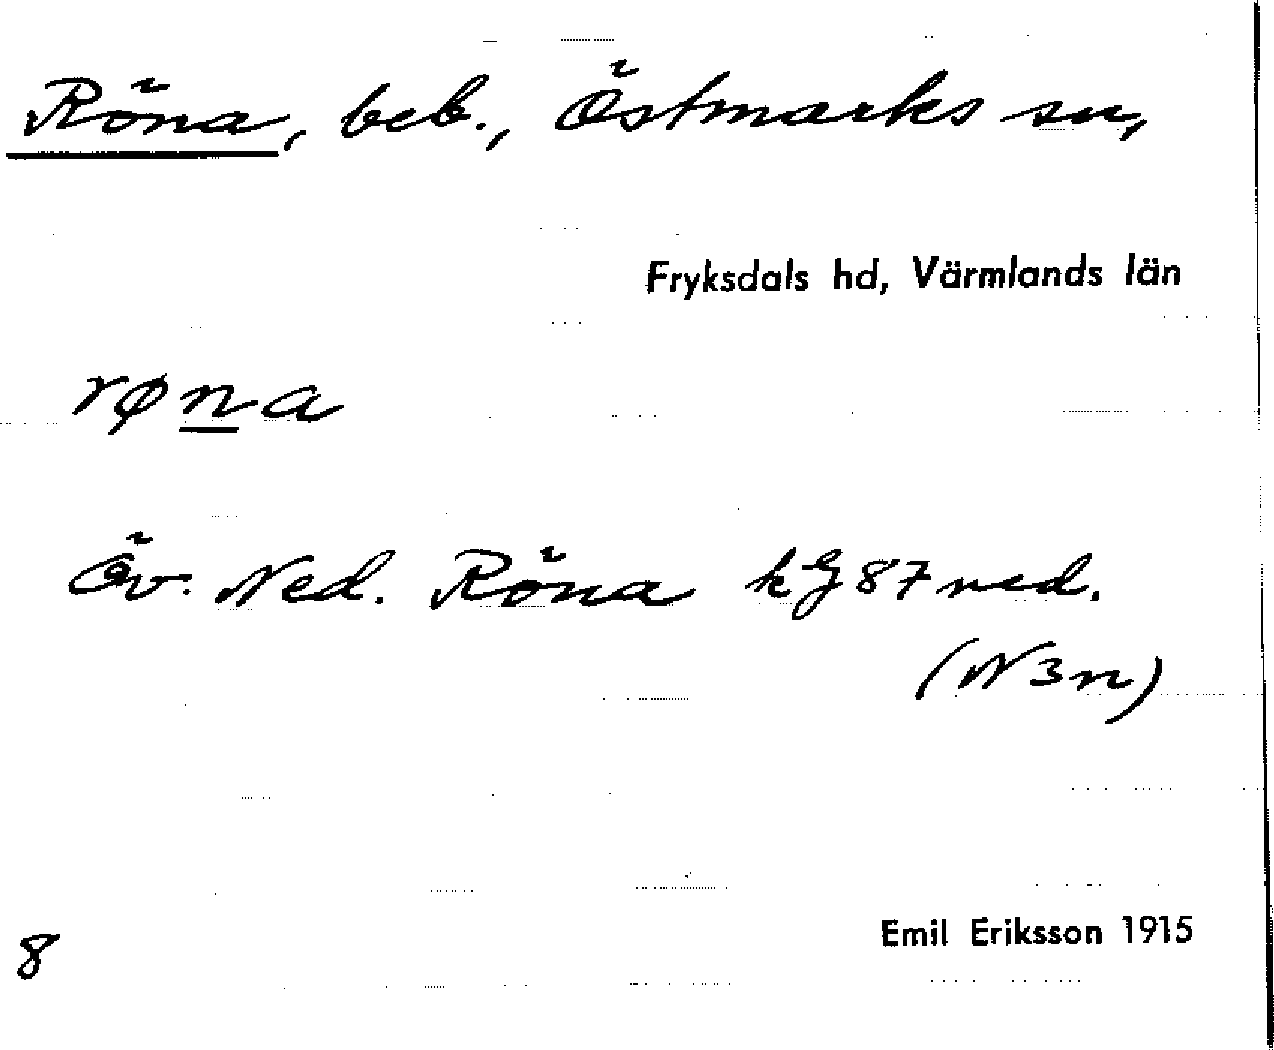 Röna, beb., Östmarks sn,
Fryksdals hd, Värmlands län
røna
Öv. Ned. Röna kG87ned.
(N3n)
8
Emil Eriksson 1915